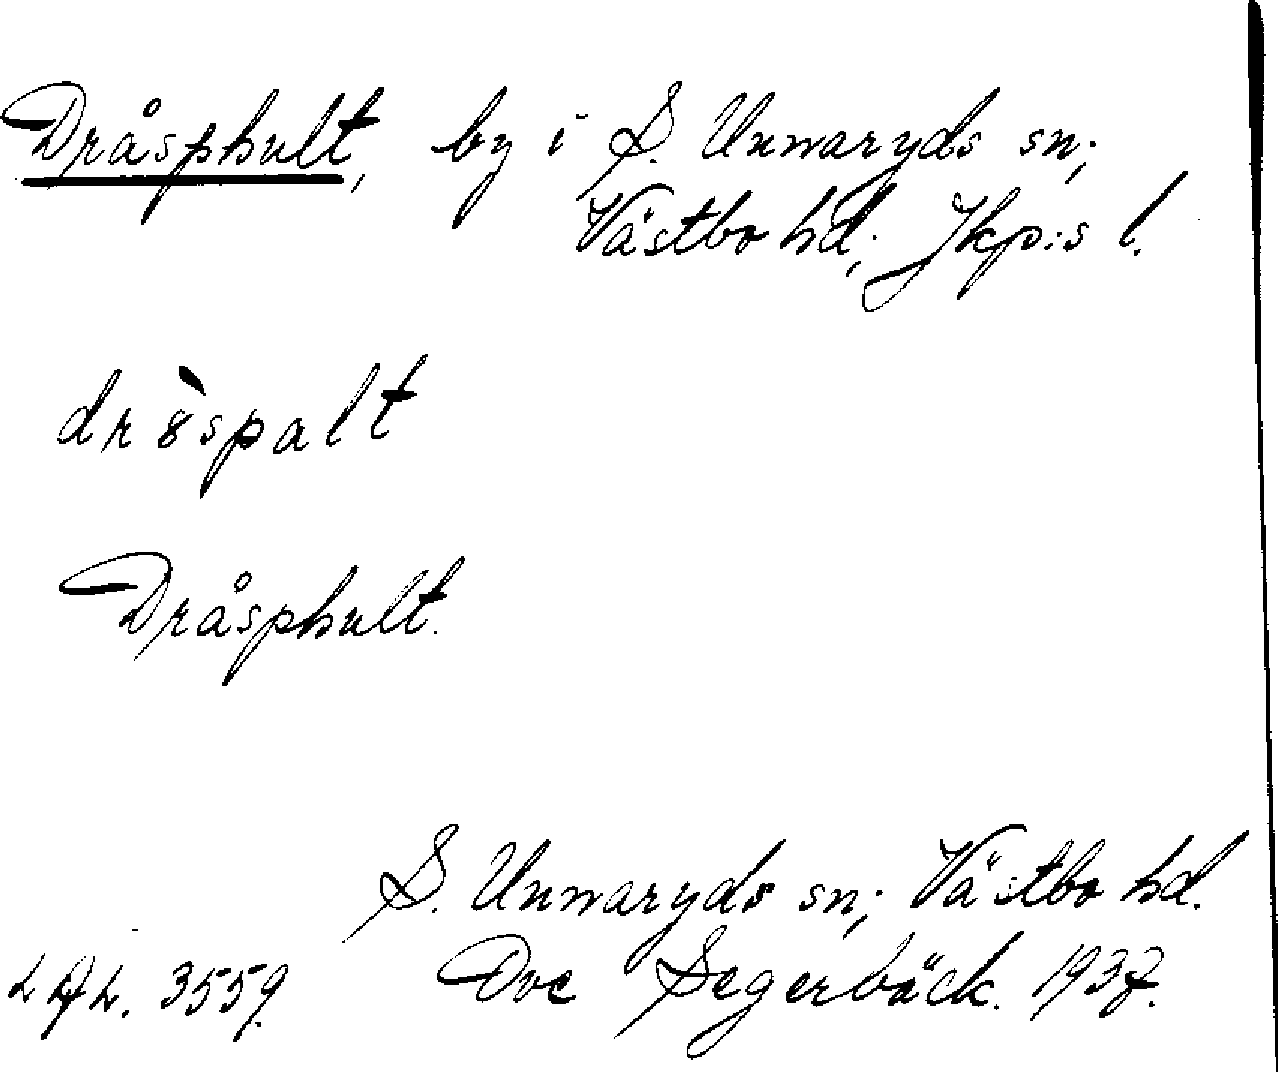 Dråsphult, by i S. Unnaryds sn;
Västbo hd; Jkp:s l.
dr8̀spalt
Dråsphult.
S. Unnaryds sn; Västbo hd.
3559. Ove Segerbäck. 1937.